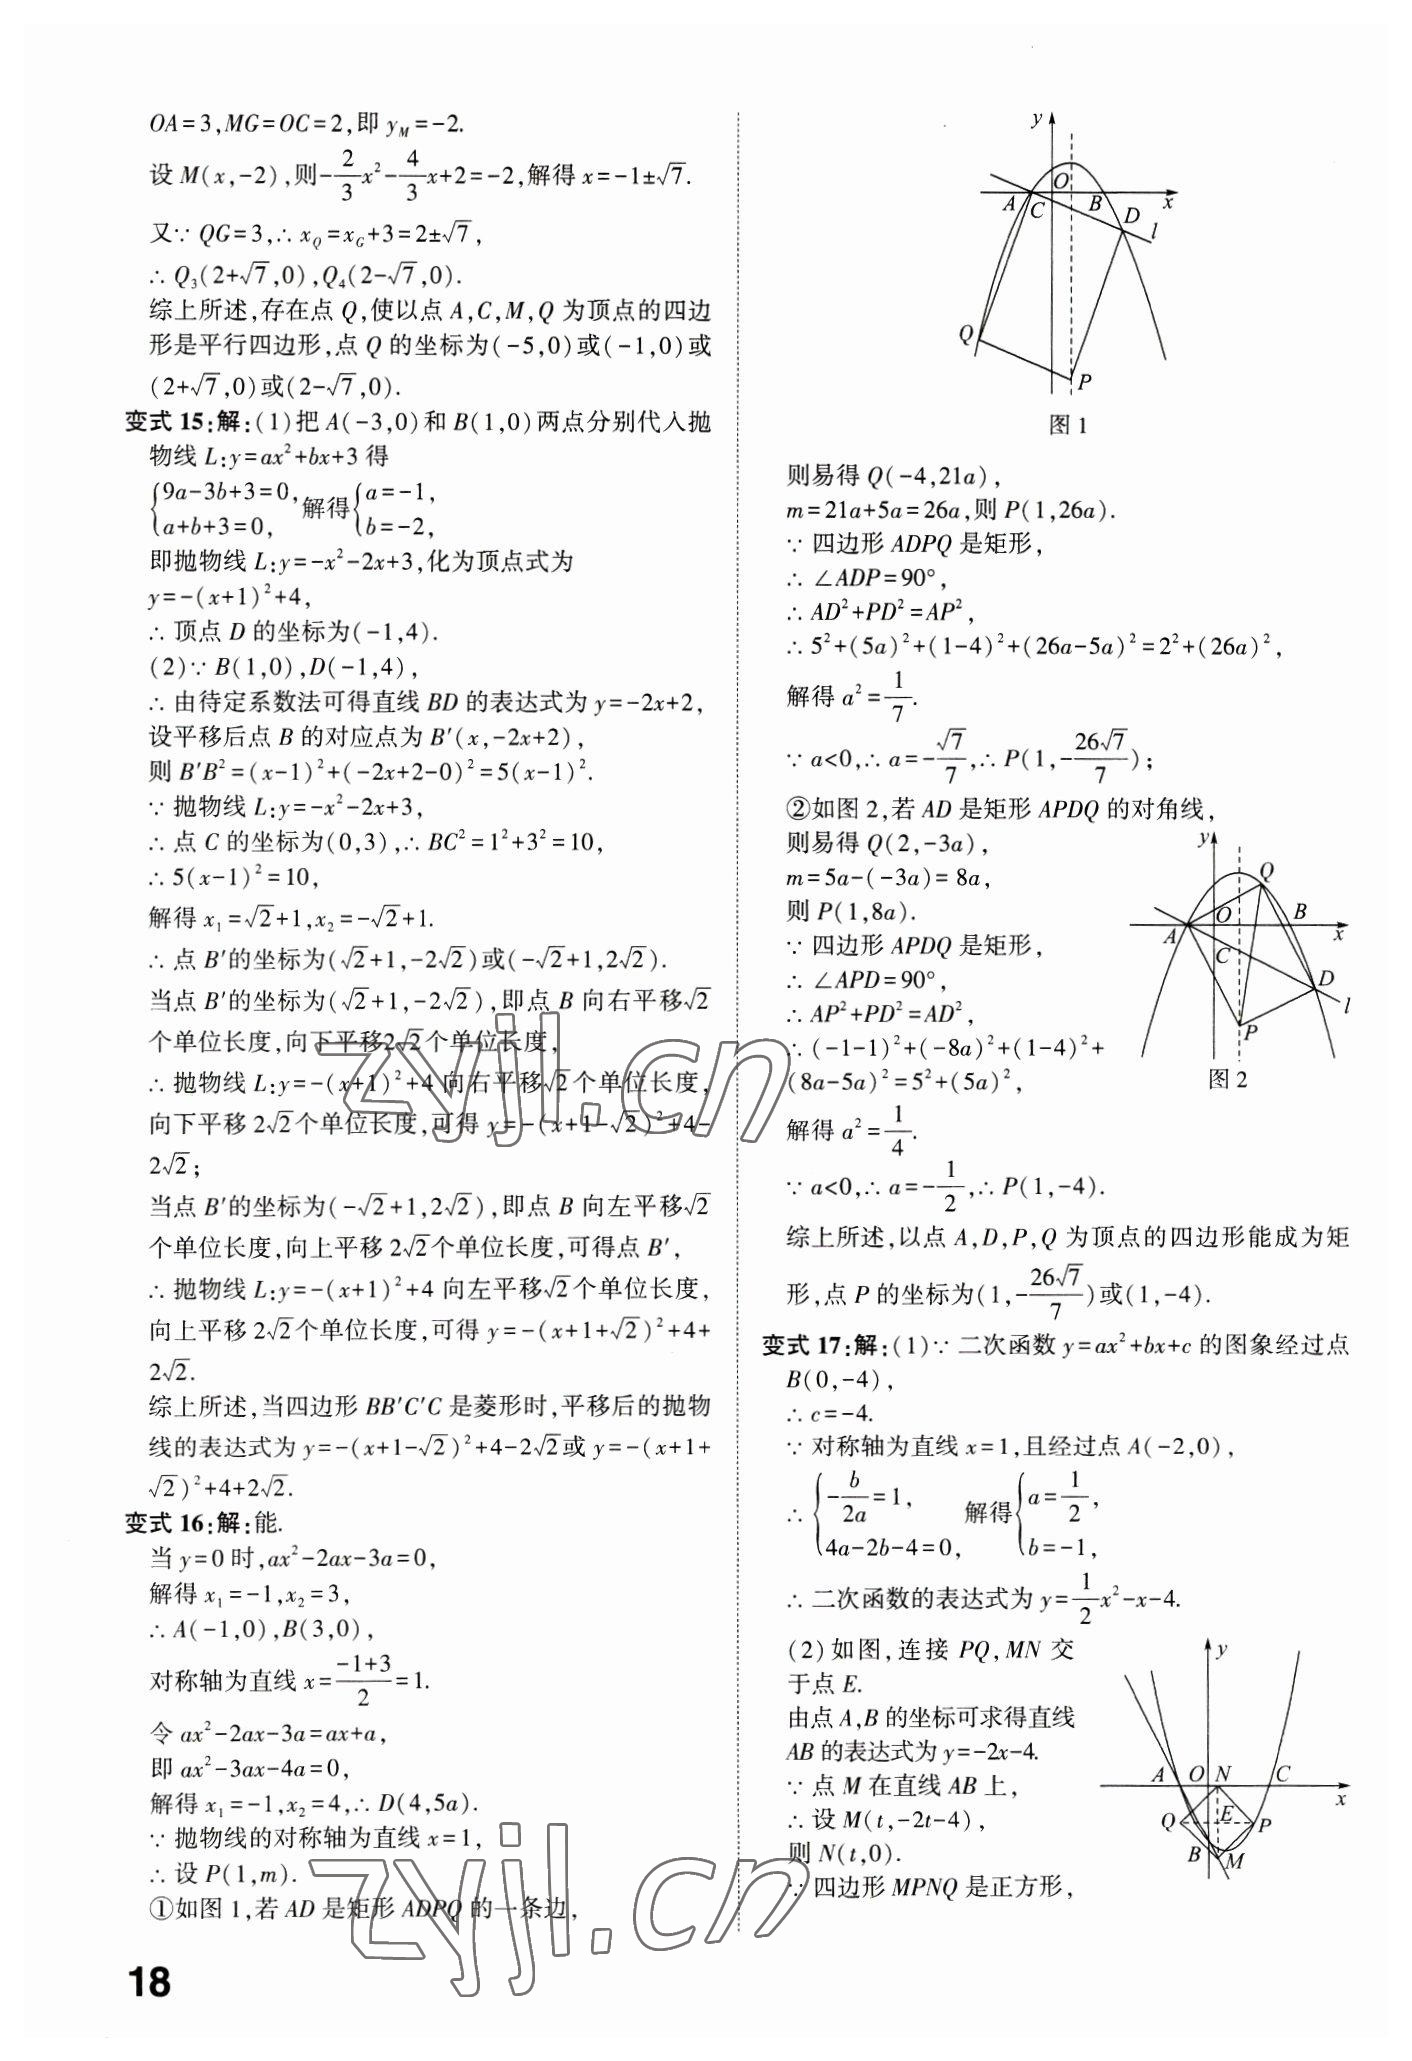 OA=3,MG=OC=2,即 y_M=-2.
设 M(x,-2),则-\frac{2}{3}x²-\frac{4}{3}x+2=-2,解得 x=-1±√7.
又∵ QG=3,∴ x_Q=x_G+3=2±√7,
∴ Q₃(2+√7,0),Q₄(2-√7,0).
综上所述,存在点 Q,使以点 A,C,M,Q 为顶点的四边
形是平行四边形,点 Q 的坐标为(-5,0)或(-1,0)或
(2+√7,0)或(2-√7,0).
变式 15:解:(1)把 A(-3,0)和 B(1,0)两点分别代入抛
物线 L:y=ax²+bx+3 得
{9a-3b+3=0, a+b+3=0, 解得{a=-1, b=-2,
即抛物线 L:y=-x²-2x+3,化为顶点式为
y=-(x+1)²+4,
∴ 顶点 D 的坐标为(-1,4).
(2)∵ B(1,0),D(-1,4),
∴ 由待定系数法可得直线 BD 的表达式为 y=-2x+2,
设平移后点 B 的对应点为 B′(x,-2x+2),
则 B′B²=(x-1)²+(-2x+2-0)²=5(x-1)².
∵ 抛物线 L:y=-x²-2x+3,
∴ 点 C 的坐标为(0,3),∴ BC²=1²+3²=10,
∴ 5(x-1)²=10,
解得 x₁=√2+1,x₂=-√2+1.
∴ 点 B′的坐标为(√2+1,-2√2)或(-√2+1,2√2).
当点 B′的坐标为(√2+1,-2√2),即点 B 向右平移√2
个单位长度,向下平移2√2个单位长度,
∴ 抛物线 L:y=-(x+1)²+4 向右平移√2个单位长度,
向下平移 2√2个单位长度,可得 y=-(x+1-√2)²+4-
2√2;
当点 B′的坐标为(-√2+1,2√2),即点 B 向左平移√2
个单位长度,向上平移 2√2个单位长度,可得点 B′,
∴ 抛物线 L:y=-(x+1)²+4 向左平移√2个单位长度,
向上平移 2√2个单位长度,可得 y=-(x+1+√2)²+4+
2√2.
综上所述,当四边形 BB′C′C 是菱形时,平移后的抛物
线的表达式为 y=-(x+1-√2)²+4-2√2或 y=-(x+1+
√2)²+4+2√2.
变式 16:解:能.
当 y=0 时,ax²-2ax-3a=0,
解得 x₁=-1,x₂=3,
∴ A(-1,0),B(3,0),
对称轴为直线 x=\frac{-1+3}{2}=1.
令 ax²-2ax-3a=ax+a,
即 ax²-3ax-4a=0,
解得 x₁=-1,x₂=4,∴ D(4,5a).
∵ 抛物线的对称轴为直线 x=1,
∴ 设 P(1,m).
①如图 1,若 AD 是矩形 ADPQ 的一条边,
18
y
O
A
C
B
D
x
l
Q
P
图 1
则易得 Q(-4,21a),
m=21a+5a=26a,则 P(1,26a).
∵ 四边形 ADPQ 是矩形,
∴ ∠ADP=90°,
∴ AD²+PD²=AP²,
∴ 5²+(5a)²+(1-4)²+(26a-5a)²=2²+(26a)²,
解得 a²=\frac{1}{7}.
∵ a<0,∴ a=-\frac{√7}{7},∴ P(1,-\frac{26√7}{7});
②如图 2,若 AD 是矩形 APDQ 的对角线,
则易得 Q(2,-3a),
m=5a-(-3a)=8a,
则 P(1,8a).
∵ 四边形 APDQ 是矩形,
∴ ∠APD=90°,
∴ AP²+PD²=AD²,
∴ (-1-1)²+(-8a)²+(1-4)²+
(8a-5a)²=5²+(5a)²,
y
Q
O
B
A
x
C
D
l
P
图 2
解得 a²=\frac{1}{4}.
∵ a<0,∴ a=-\frac{1}{2},∴ P(1,-4).
综上所述,以点 A,D,P,Q 为顶点的四边形能成为矩
形,点 P 的坐标为(1,-\frac{26√7}{7})或(1,-4).
变式 17:解:(1)∵ 二次函数 y=ax²+bx+c 的图象经过点
B(0,-4),
∴ c=-4.
∵ 对称轴为直线 x=1,且经过点 A(-2,0),
∴ {-\frac{b}{2a}=1, 4a-2b-4=0, 解得{a=\frac{1}{2}, b=-1,
∴ 二次函数的表达式为 y=\frac{1}{2}x²-x-4.
(2)如图,连接 PQ,MN 交
于点 E.
由点 A,B 的坐标可求得直线
AB 的表达式为 y=-2x-4.
∵ 点 M 在直线 AB 上,
∴ 设 M(t,-2t-4),
则 N(t,0).
∵ 四边形 MPNQ 是正方形,
y
A
O
N
C
x
Q
E
P
B
M
zyjl.cn
zyjl.cn